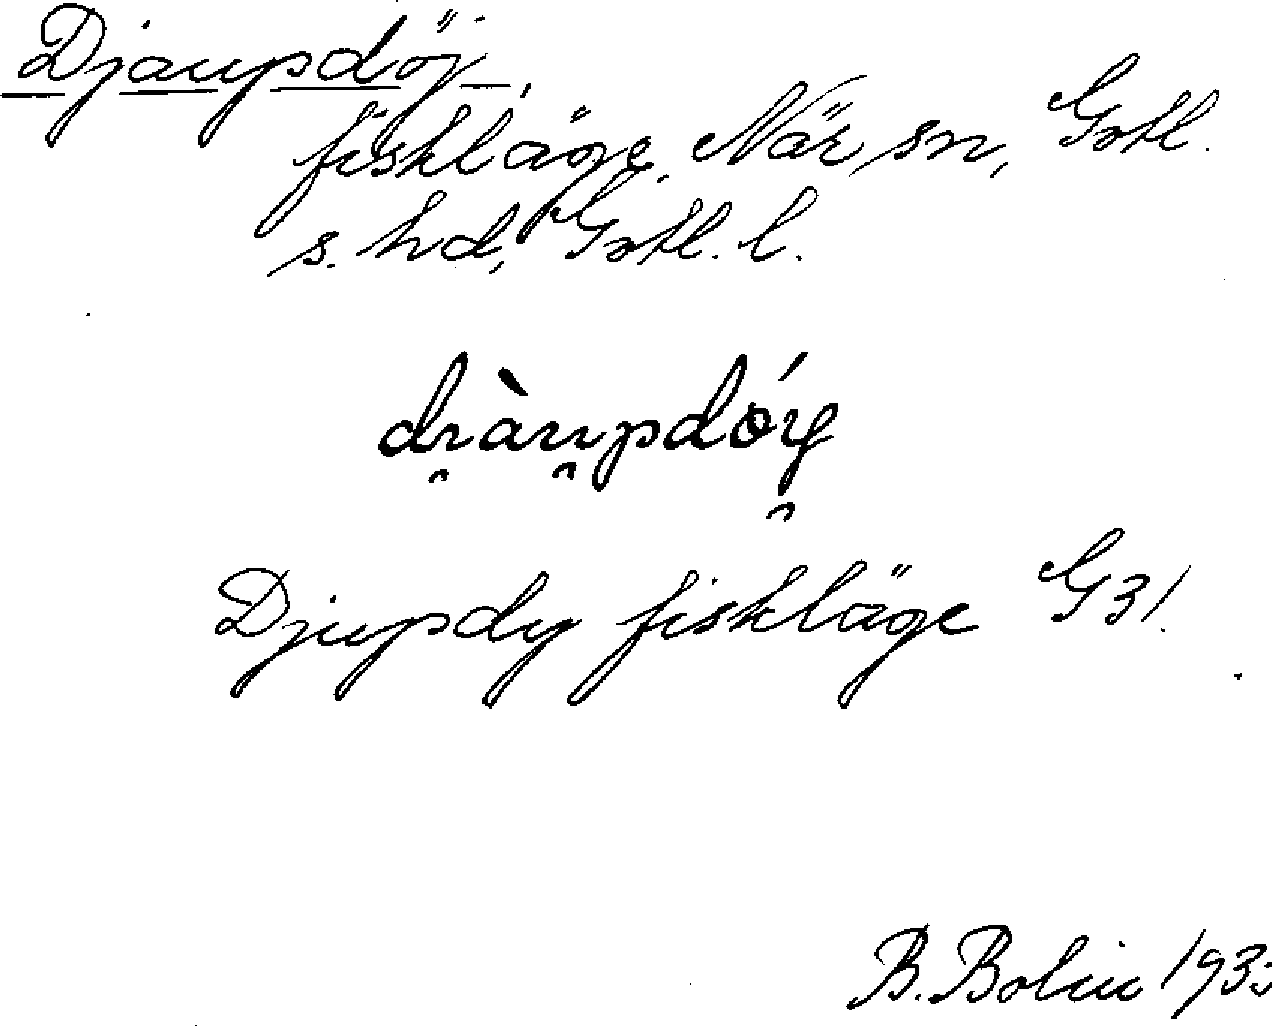 Djaupdöj,
fiskläge, När sn, Gotl.
s. hd, Gotl. l.
Djupdy fiskläge G31.
B. Bolin